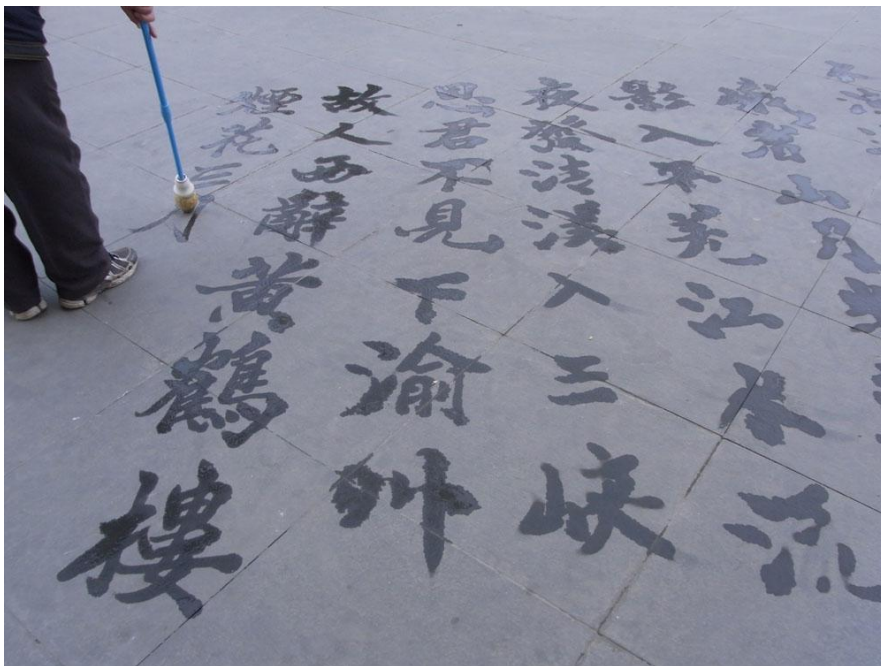 峨眉山月半
影入平羌江水流
夜發清溪入三峽
思君不見下渝州
故人西辭黃鶴樓
煙花三